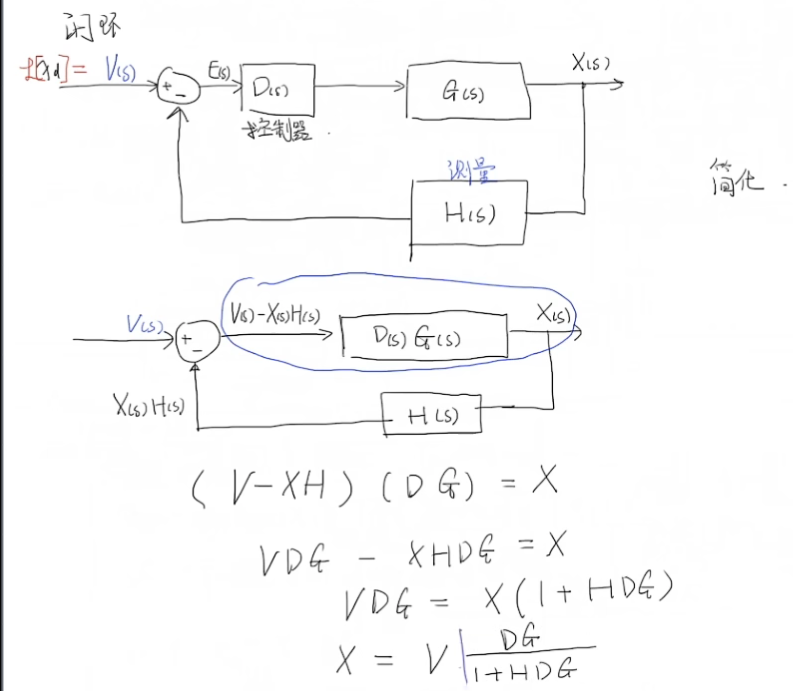 闭环
ℒ[Xd] = V(s)
+
-
E(s)
D(s)
控制器
G(s)
X(s)
测量
H(s)
简化.
V(s)
+
-
V(s)-X(s)H(s)
D(s) G(s)
X(s)
X(s)H(s)
H(s)
(V-XH)(DG) = X
VDG - XHDG = X
VDG = X(1 + HDG)
X = V DG/1+HDG